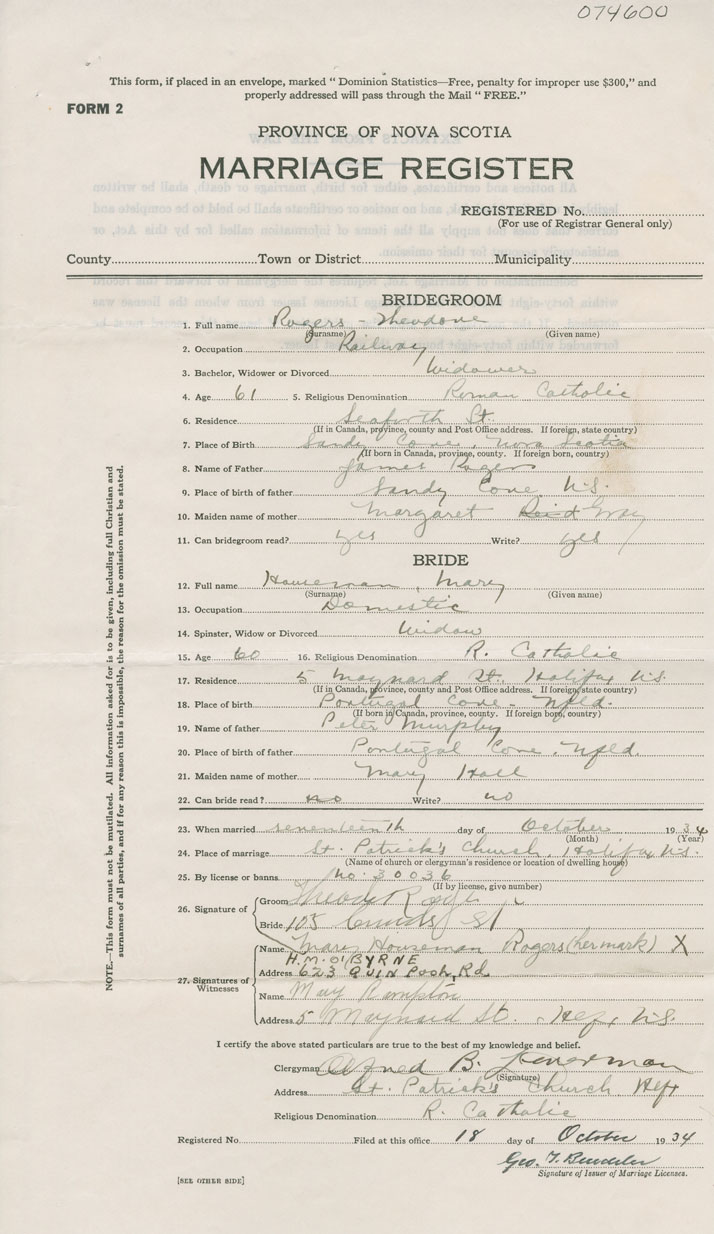 074600
This form, if placed in an envelope, marked " Dominion Statistics—Free, penalty for improper use $300," and
properly addressed will pass through the Mail " FREE."
FORM 2
PROVINCE OF NOVA SCOTIA
MARRIAGE REGISTER
REGISTERED No.
(For use of Registrar General only)
County Town or District Municipality
BRIDEGROOM
1. Full name Rogers - Theodore
(Surname) (Given name)
2. Occupation Railway
3. Bachelor, Widower or Divorced Widower
4. Age 61 5. Religious Denomination Roman Catholic
6. Residence Seaforth St.
(If in Canada, province, county and Post Office address. If foreign, state country)
7. Place of Birth Sandy Cove, Nova Scotia
(If born in Canada, province, county. If foreign born, country)
8. Name of Father James Rogers
9. Place of birth of father Sandy Cove N.S.
10. Maiden name of mother Margaret Reid Gray
11. Can bridegroom read? yes Write? yes
BRIDE
12. Full name Houseman, Mary
(Surname) (Given name)
13. Occupation Domestic
14. Spinster, Widow or Divorced Widow
15. Age 60 16. Religious Denomination R. Catholic
17. Residence 5 Maynard St. Halifax N.S.
(If in Canada, province, county and Post Office address. If foreign, state country)
18. Place of birth Portugal Cove - Nfld.
(If born in Canada, province, county. If foreign born, country)
19. Name of father Peter Murphy
20. Place of birth of father Portugal Cove, Nfld.
21. Maiden name of mother Mary Hall
22. Can bride read? no Write? no
23. When married seventeenth day of October 1934
(Month) (Year)
24. Place of marriage St. Patrick's Church, Halifax N.S.
(Name of church or clergyman's residence or location of dwelling house)
25. By license or banns No. 30036
(If by license, give number)
26. Signature of
Groom
Bride 105 St
27. Signatures of Witnesses
Name Mary Houseman Rogers (her mark) X
H.M. O'BYRNE
Address 623 QUIN Pooh, Rd
Name May Rampton
Address 5 Maynard St. Hfx, N.S.
I certify the above stated particulars are true to the best of my knowledge and belief.
Clergyman Alfred B.
(Signature)
Address St. Patrick's Church. Hfx
Religious Denomination R. Catholic
Registered No. Filed at this office 18 day of October 1934
Geo. T.
Signature of Issuer of Marriage Licenses.
[SEE OTHER SIDE]
NOTE.—This form must not be mutilated. All information asked for is to be given, including full Christian and
surnames of all parties, and if for any reason this is impossible, the reason for the omission must be stated.